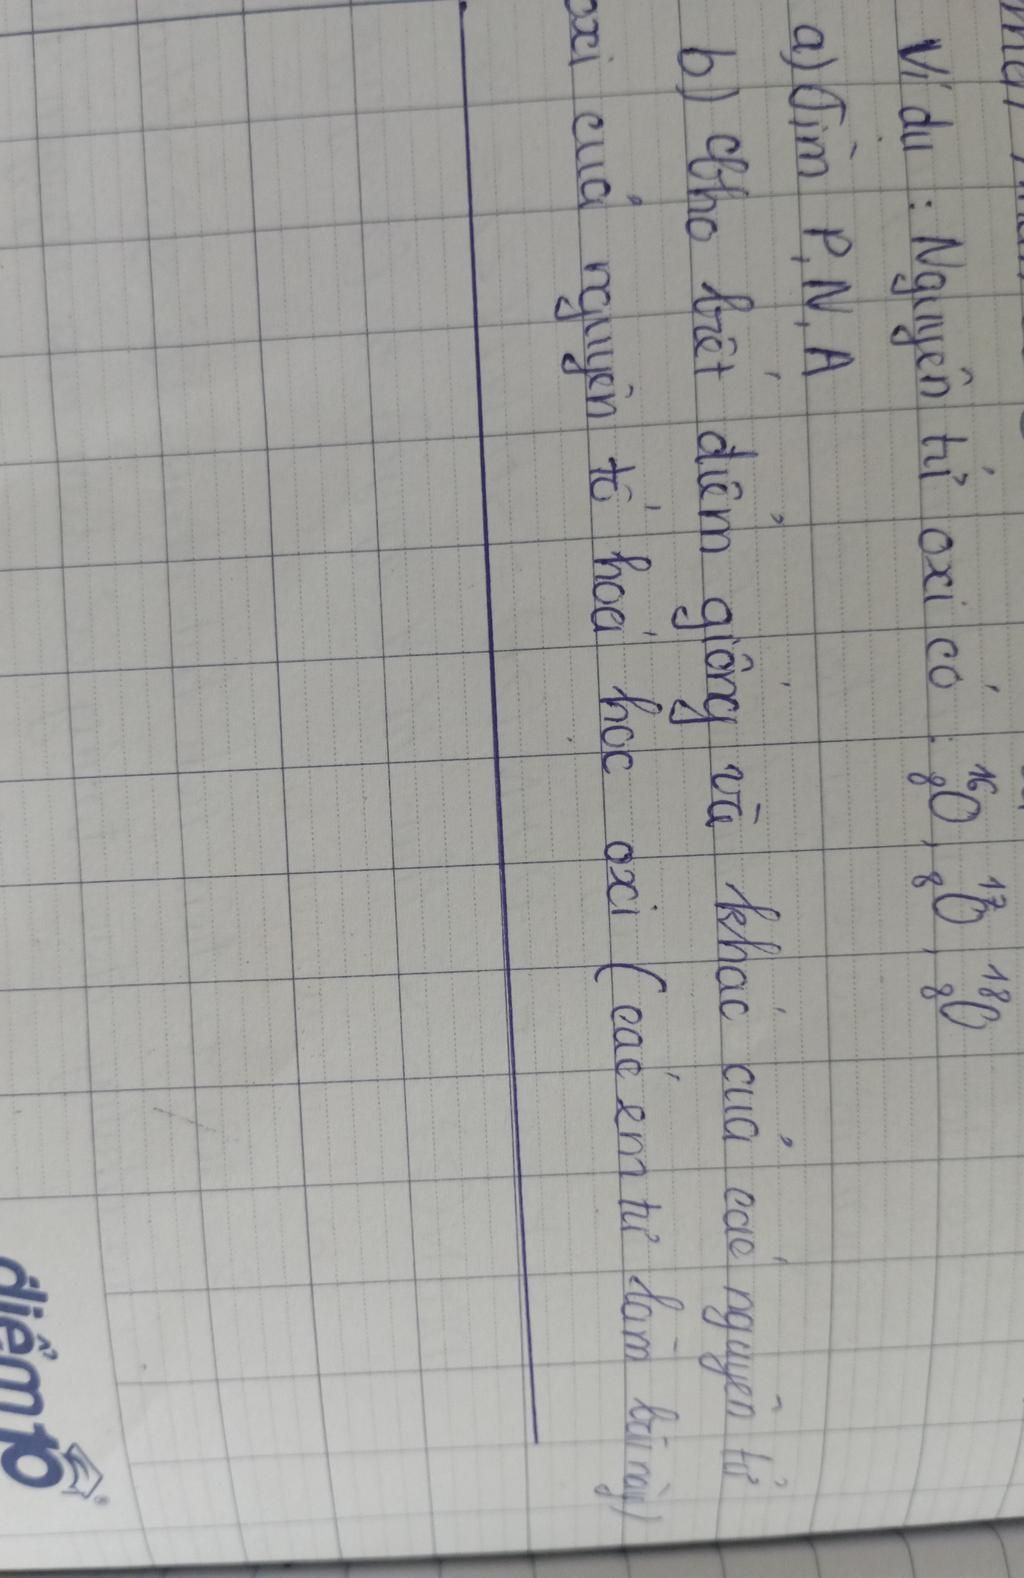 Ví dụ : Nguyên tử oxi có : ¹⁶₈O, ¹⁷₈O, ¹⁸₈O
a) Tìm P, N, A
b) Cho biết điểm giống và khác của các nguyên tử
oxi của nguyên tố hoá học oxi (các em tự làm bài này)
điểm 10